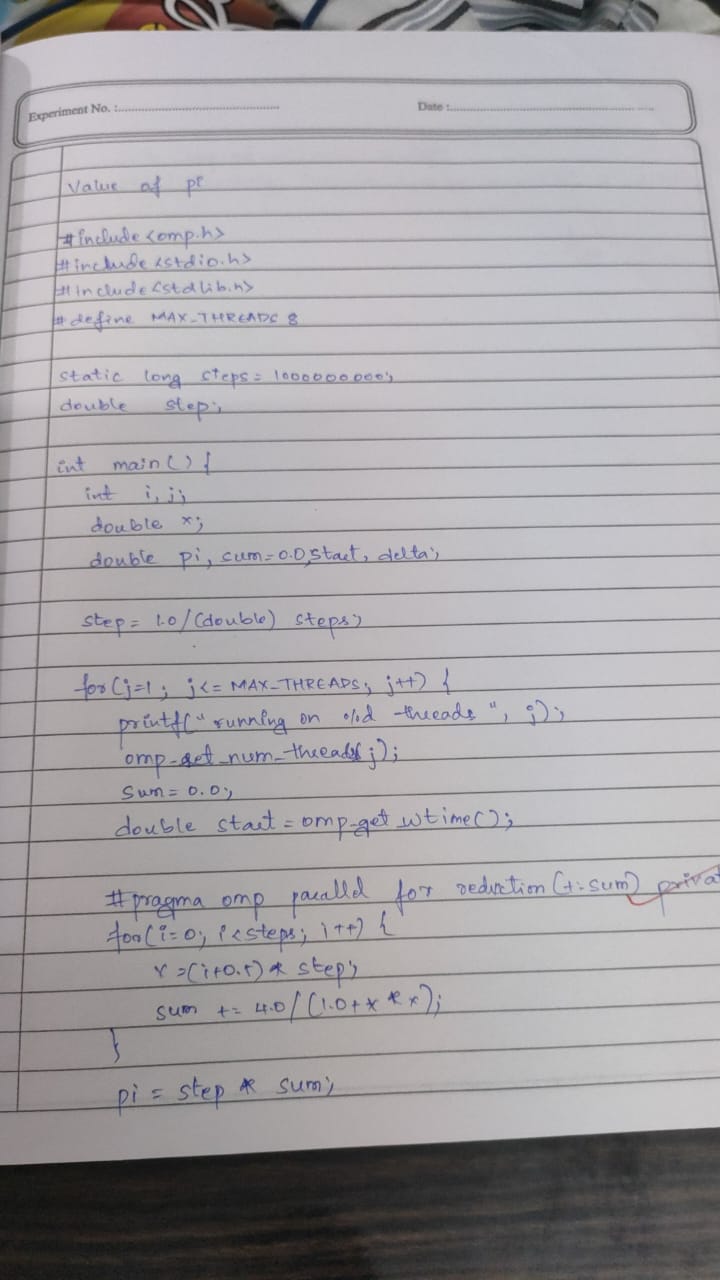 Experiment No. :
Date :
Value of pi
#include <omp.h>
#include <stdio.h>
#include <stdlib.h>
#define MAX_THREADS 8
static long steps = 1000000000;
double step;
int main() {
int i, j;
double x;
double pi, sum=0.0, start, delta;
step = 1.0/(double) steps;
for(j=1; j<= MAX_THREADS; j++) {
printf(" running on %d threads ", j);
omp_set_num_threads(j);
sum = 0.0;
double start = omp_get_wtime();
#pragma omp parallel for reduction (+:sum) privat
for(i=0; i<steps; i++) {
x = (i+0.5) * step;
sum += 4.0/(1.0+x*x);
}
pi = step * sum;